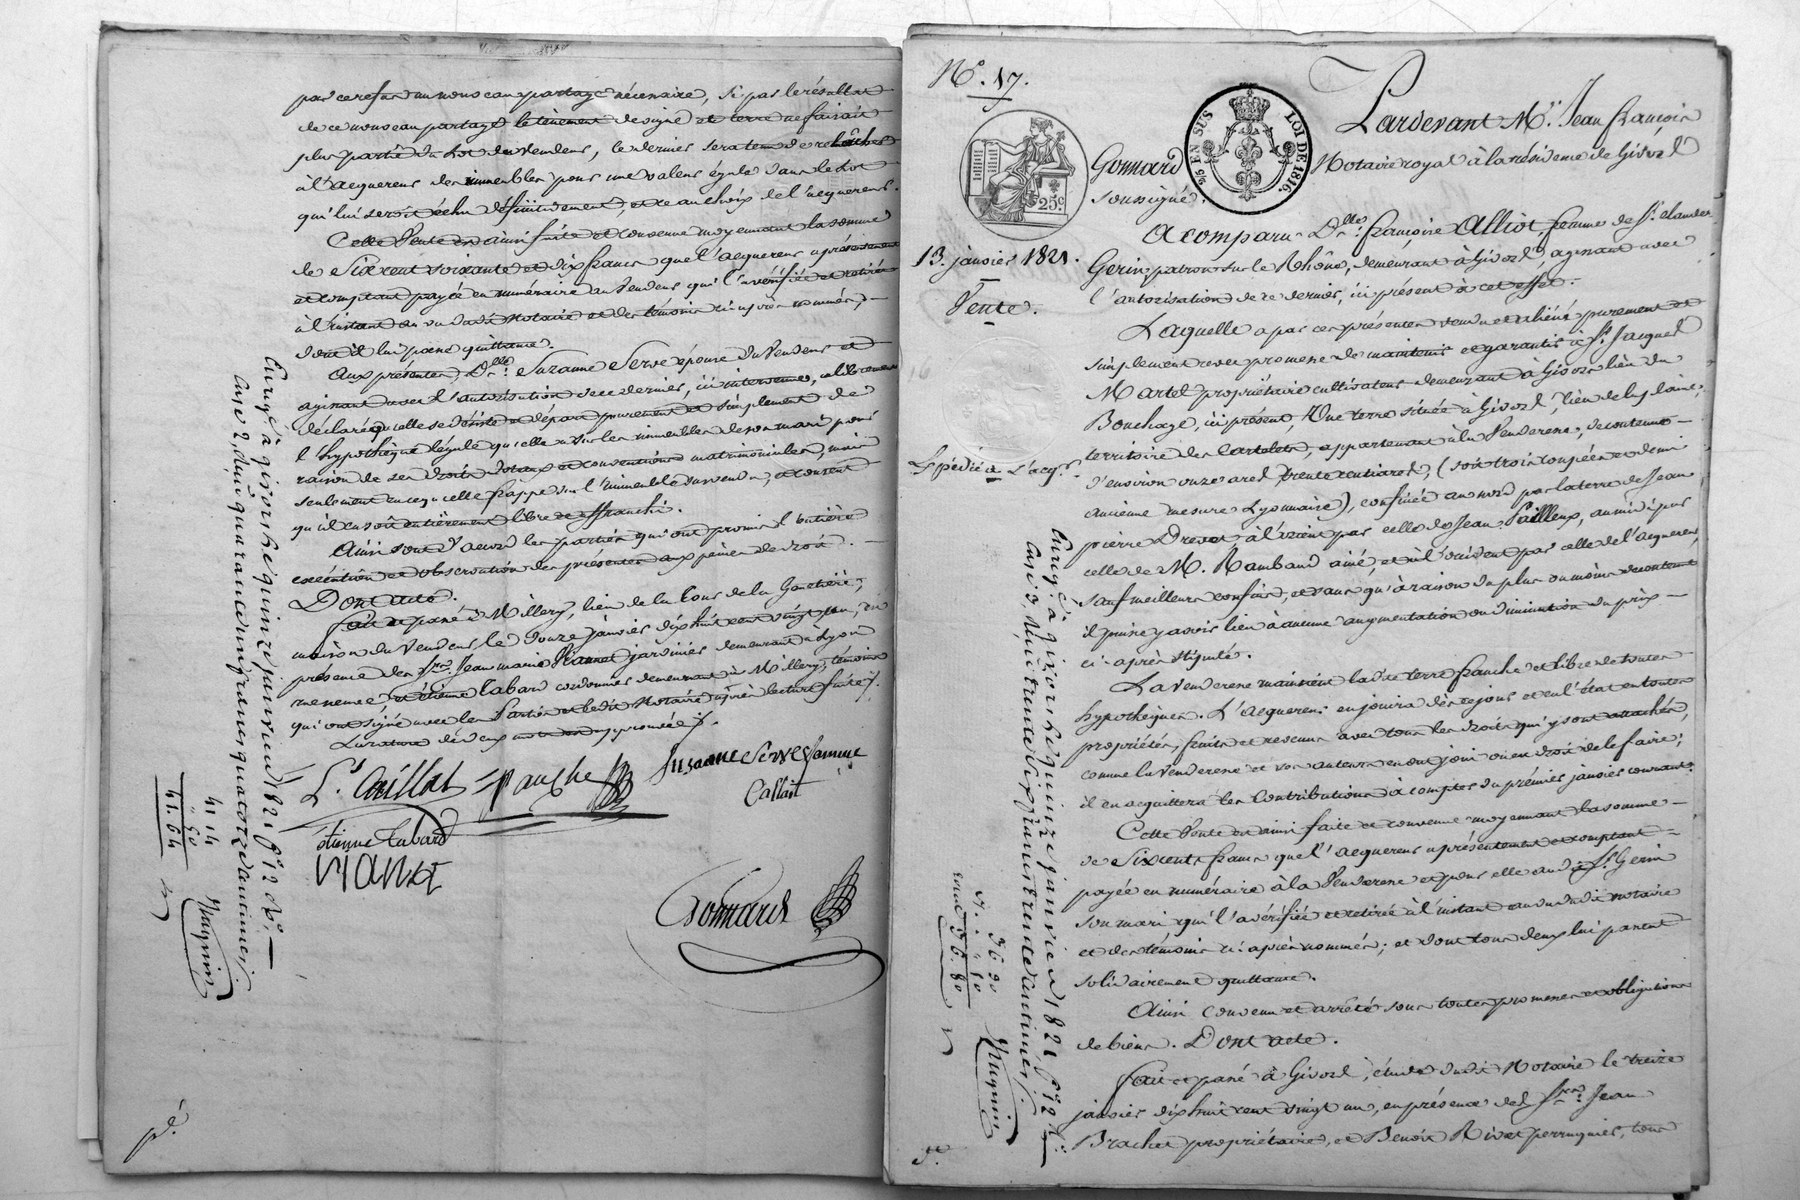 par ce refus un nouveau partage nécessaire, si par le résultat
de ce nouveau partage le tènement désigné et terre ne faisait
plus partie du Lot du vendeur, ce dernier sera tenu de relâcher
à l'acquereur des immeubles pour une valeur égale dans le Lot
qui lui seroit échu définitivement, et ce au choix de l'acquereur.
Cette Vente est ainsi faite et convenue moyennant la somme
de Six cent soixante et dix francs que l'acquereur a présentement
et comptant payée en numéraire au Vendeur qui l'a vérifiée et retirée
à l'instant au vu dudit Notaire et des témoins ci-après nommés,
dont il lui passe quittance.
Aux présentes Dlle. Suzanne Serve épouse du Vendeur et
agissant avec l'autorisation de ce dernier, ici intervenue, a librement
déclaré qu'elle se désiste et départ purement et simplement de
l'hypothèque légale qu'elle a sur les immeubles de son mari pour
raison de ses droits dotaux et conventions matrimoniales, mais
seulement en ce qu'elle frappe sur l'immeuble sus vendu, et consent
qu'il en soit entièrement libre et affranchi.
Ainsi sont d'accord les parties qui ont promis l'entière
exécution et observation des présentes aux peines de droit.
Dont acte.
fait et passé à Millery, lieu de la Tour de la Gonetière,
maison du Vendeur le douze janvier dix huit cent vingt un, en
présence des Srs. Jean marie Viannet jardinier demeurant à Lyon
et étienne Tabard cordonnier demeurant à Millery, témoins
qui ont signé avec les Parties et ledit Notaire après lecture faite.
La rature de deux mots est approuvée.
Ls. Caillat
Suzanne Serve femme
Callait
étienne tabard
VIANET
Gonnard
Enrgé à givors le quinze janvier 1821 fo. 12 Ro.
Case 2, du quarante un francs quatorze centimes
41 14
" 50
41. 64
Magnin
No. 17.
25 c.
5/6 EN SUS LOI DE 1816.
Pardevant Me. Jean françois
Gonnard Notaire royal à la résidence de Givors
soussigné,
13. janvier 1821.
Vente.
Expédié à L'acqr.
A comparu Dlle. françoise Alliot, femme de Sr. claude
Gerin patron sur le Rhône, demeurant à Givors, agissant avec
l'autorisation de ce dernier, ici présent à cet effet.
Laquelle a par ces présentes vendu et aliéné purement et
simplement avec promesse de maintenir et garantir à Sr. Jacques
Martel propriétaire cultivateur demeurant à Givors lieu du
Bouchage, ici présent, Une terre située à Givors, lieu de la plaine,
territoire des Cartelets, appartenant à la Venderesse, de contenue
d'environ onze ares trente centiares, (soit trois coupées et demi
ancienne mesure Lyonnaise), confinée au nord par la terre de Jean
pierre Drevet, à l'orient par celle de Jean Pailleux, au midi par
celle de M. Rambaud ainé, et à l'occident par celle de l'acquereur,
sauf meilleurs confins, et sans qu'à raison du plus ou moins de contenue
il puisse y avoir lieu à aucune augmentation ou diminution du prix
ci-après stipulé.
La Venderesse maintient ladite terre franche et libre de toutes
hypothèques. L'acquereur en jouira dès ce jour et en l'état en toutes
propriétés, fruits et revenus avec tous les droits qui y sont attachés,
comme la Venderesse et ses auteurs en ont joui ou eu droit de le faire;
il en acquittera les Contributions à compter du premier janvier courant.
Cette Vente est ainsi faite et convenue moyennant la somme
de Six cents francs que l'acquereur a présentement et comptant
payée en numéraire à la Venderesse et pour elle audit Sr. Gerin
son mari, qui l'a vérifiée et retirée à l'instant au vu dudit notaire
et des témoins ci-après nommés; et dont tous deux lui passent
solidairement quittance.
Ainsi convenu et arrêté sous toutes promesses et obligations
de biens. Dont acte.
fait et passé à Givors, étude dudit Notaire le treize
janvier dix huit cent vingt un, en présence des Srs. Jean
Brachet propriétaire, et Benoit Rivet perruquier, tous
Enrgé. à givors le quinze janvier 1821 fo. 12
Case 3, du trente six francs trente centimes
36 30
" 50
36. 80
Magnin